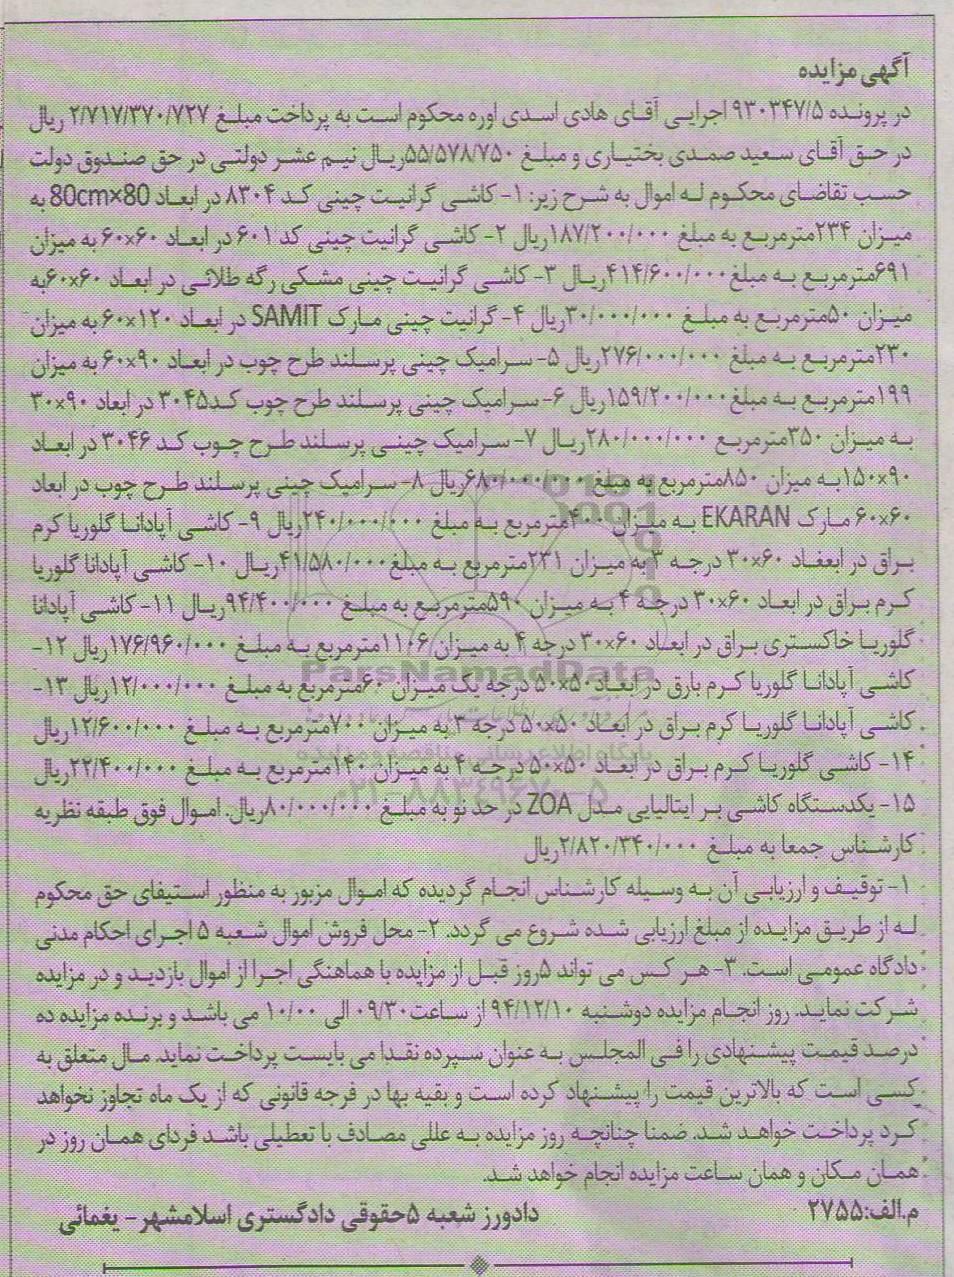 آگهی مزایده
در پرونده ۹۳۰۳۴۷/۵ اجرایی آقای هادی اسدی اوره محکوم است به پرداخت مبلغ ۲/۷۱۷/۳۷۰/۷۲۷ ریال
در حق آقای سعید صمدی بختیاری و مبلغ ۵۵/۵۷۸/۷۵۰ریال نیم عشر دولتی در حق صندوق دولت
حسب تقاضای محکوم له اموال به شرح زیر: ۱- کاشی گرانیت چینی کد ۸۳۰۴ در ابعاد 80cm×80 به
میزان ۲۳۴مترمربع به مبلغ ۱۸۷/۲۰۰/۰۰۰ریال ۲- کاشی گرانیت چینی کد ۶۰۱ در ابعاد ۶۰×۶۰ به میزان
۶۹۱مترمربع به مبلغ ۴۱۴/۶۰۰/۰۰۰ریال ۳- کاشی گرانیت چینی مشکی رگه طلائی در ابعاد ۶۰×۶۰به
میزان ۵۰مترمربع به مبلغ ۳۰/۰۰۰/۰۰۰ریال ۴- گرانیت چینی مارک SAMIT در ابعاد ۱۲۰×۶۰ به میزان
۲۳۰مترمربع به مبلغ ۲۷۶/۰۰۰/۰۰۰ریال ۵- سرامیک چینی پرسلند طرح چوب در ابعاد ۹۰×۶۰ به میزان
۱۹۹مترمربع به مبلغ ۱۵۹/۲۰۰/۰۰۰ریال ۶- سرامیک چینی پرسلند طرح چوب کد۳۰۴۵ در ابعاد ۹۰×۳۰
به میزان ۳۵۰مترمربع ۲۸۰/۰۰۰/۰۰۰ریال ۷- سرامیک چینی پرسلند طرح چوب کد ۳۰۴۶ در ابعاد
۹۰×۱۵۰به میزان ۸۵۰مترمربع به مبلغ ۶۸۰/۰۰۰/۰۰۰ریال ۸- سرامیک چینی پرسلند طرح چوب در ابعاد
۶۰×۶۰ مارک EKARAN به میزان ۴۰۰مترمربع به مبلغ ۲۴۰/۰۰۰/۰۰۰ریال ۹- کاشی آپادانا گلوریا کرم
براق در ابعفاد ۶۰×۳۰ درجه ۳ به میزان ۲۳۱مترمربع به مبلغ ۴۱/۵۸۰/۰۰۰ریال ۱۰- کاشی آپادانا گلوریا
کرم براق در ابعاد ۶۰×۳۰ درجه ۴ به میزان ۵۹۰مترمربع به مبلغ ۹۴/۴۰۰/۰۰۰ریال ۱۱- کاشی آپادانا
گلوریا خاکستری براق در ابعاد ۶۰×۳۰ درجه ۴ به میزان ۱۱۰۶مترمربع به مبلغ ۱۷۶/۹۶۰/۰۰۰ریال ۱۲-
کاشی آپادانا گلوریا کرم بارق در ابعاد ۵۰×۵۰ درجه یک میزان ۶۰مترمربع به مبلغ ۱۲/۰۰۰/۰۰۰ریال ۱۳-
کاشی آپادانا گلوریا کرم براق در ابعاد ۵۰×۵۰ درجه ۳ به میزان ۷۰۰مترمربع به مبلغ ۱۲/۶۰۰/۰۰۰ریال
۱۴- کاشی گلوریا کرم براق در ابعاد ۵۰×۵۰ درجه ۴ به میزان ۱۴۰مترمربع به مبلغ ۲۲/۴۰۰/۰۰۰ریال
۱۵- یکدستگاه کاشی بر ایتالیایی مدل ZOA در حد نو به مبلغ ۸۰/۰۰۰/۰۰۰ریال. اموال فوق طبقه نظریه
کارشناس جمعا به مبلغ ۲/۸۲۰/۳۴۰/۰۰۰ریال
۱- توقیف و ارزیابی آن به وسیله کارشناس انجام گردیده که اموال مزبور به منظور استیفای حق محکوم
له از طریق مزایده از مبلغ ارزیابی شده شروع می گردد. ۲- محل فروش اموال شعبه ۵ اجرای احکام مدنی
دادگاه عمومی است. ۳- هر کس می تواند ۵روز قبل از مزایده با هماهنگی اجرا از اموال بازدید و در مزایده
شرکت نماید. روز انجام مزایده دوشنبه ۹۴/۱۲/۱۰ از ساعت ۰۹/۳۰ الی ۱۰/۰۰ می باشد و برنده مزایده ده
درصد قیمت پیشنهادی را فی المجلس به عنوان سپرده نقدا می بایست پرداخت نماید. مال متعلق به
کسی است که بالاترین قیمت را پیشنهاد کرده است و بقیه بها در فرجه قانونی که از یک ماه تجاوز نخواهد
کرد پرداخت خواهد شد. ضمنا چنانچه روز مزایده به عللی مصادف با تعطیلی باشد فردای همان روز در
همان مکان و همان ساعت مزایده انجام خواهد شد.
م.الف:۲۷۵۵
دادورز شعبه ۵حقوقی دادگستری اسلامشهر- یغمائی
ParsNamadData
پایگاه اطلاع رسانی مناقصه و مزایده
۰۲۱-۸۸۳۴۹۶۷۰-۵